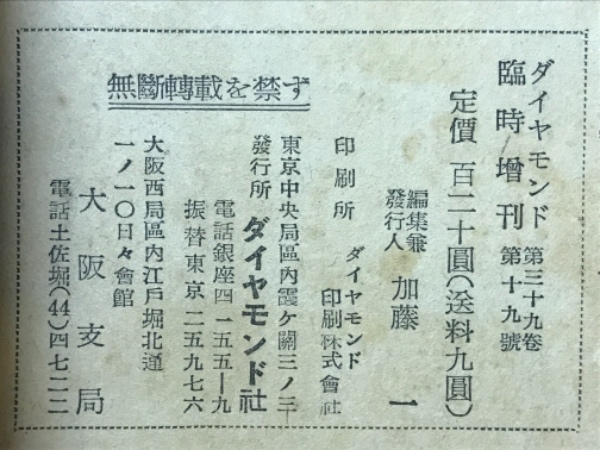 ダイヤモンド 第三十九卷
臨時增刊 第十九號
定價 百二十圓(送料九圓)
編集兼
發行人 加藤 一
印刷所 ダイヤモンド
印刷株式會社
無斷轉載を禁ず
東京中央局區內霞ケ關三ノ三
發行所 ダイヤモンド社
電話銀座四一五五―九
振替東京二五九七六
大阪西局區內江戶堀北通
一ノ一〇日々會館
大阪支局
電話土佐堀(44)四七二二